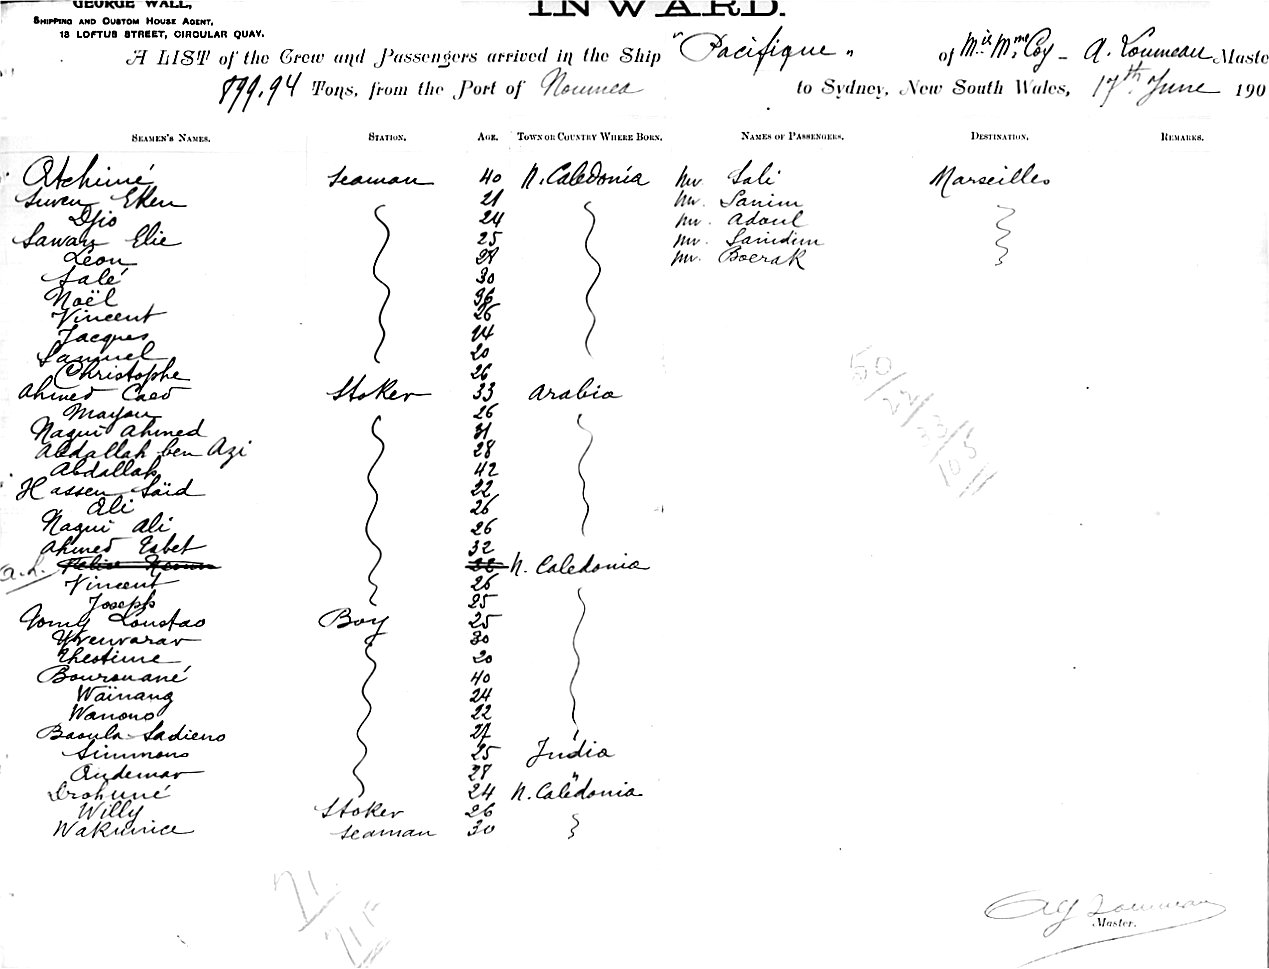 GEORGE WALL,
SHIPPING AND CUSTOM HOUSE AGENT,
18 LOFTUS STREET, CIRCULAR QUAY.
INWARD.
A LIST of the Crew and Passengers arrived in the Ship "Pacifique" of Coy - A. Loumeau Maste
899.94 Tons, from the Port of Noumea to Sydney, New South Wales, 17th June 190
SEAMEN'S NAMES. STATION. AGE. TOWN OR COUNTRY WHERE BORN. NAMES OF PASSENGERS. DESTINATION. REMARKS.
Atchimé Seaman 40 N. Caledonia Mr. Sali Marseilles
Suven Eken 21 Mr. Sanim
Djio 24 Mr. Adoul
Saway Elie 25 Mr. Sanidim
Léon 28 Mr. Boerak
Salé 30
Noël 36
Vincent 26
Jacques 24
Samuel 20
Christophe 26
Ahmed Caed Stoker 33 Arabia
Mayou 26
Nagui Ahmed 31
Abdallah ben Azi 28
Abdallah 42
Hassen Saïd 22
Ali 26
Nagui Ali 26
Ahmed Esbet 32
N. Caledonia
Vincent 26
Joseph 25
Loustao Boy 25
30
Thestime 20
Bourouané 40
Wainang 24
Wanono 22
Baoula Sadieno 27
Simmons 25 India
Andemar 28 "
Drohuné 24 N. Caledonia
Willy Stoker 26
Wakunice Seaman 30
71
71F
Master.